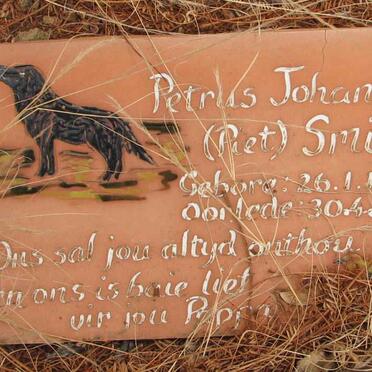 Petrus Johan
(Piet) Smi
Gebore: 26.1.
Oorlede: 30.6.
Ons sal jou altyd onthou
en ons is baie lief
vir jou Pappa